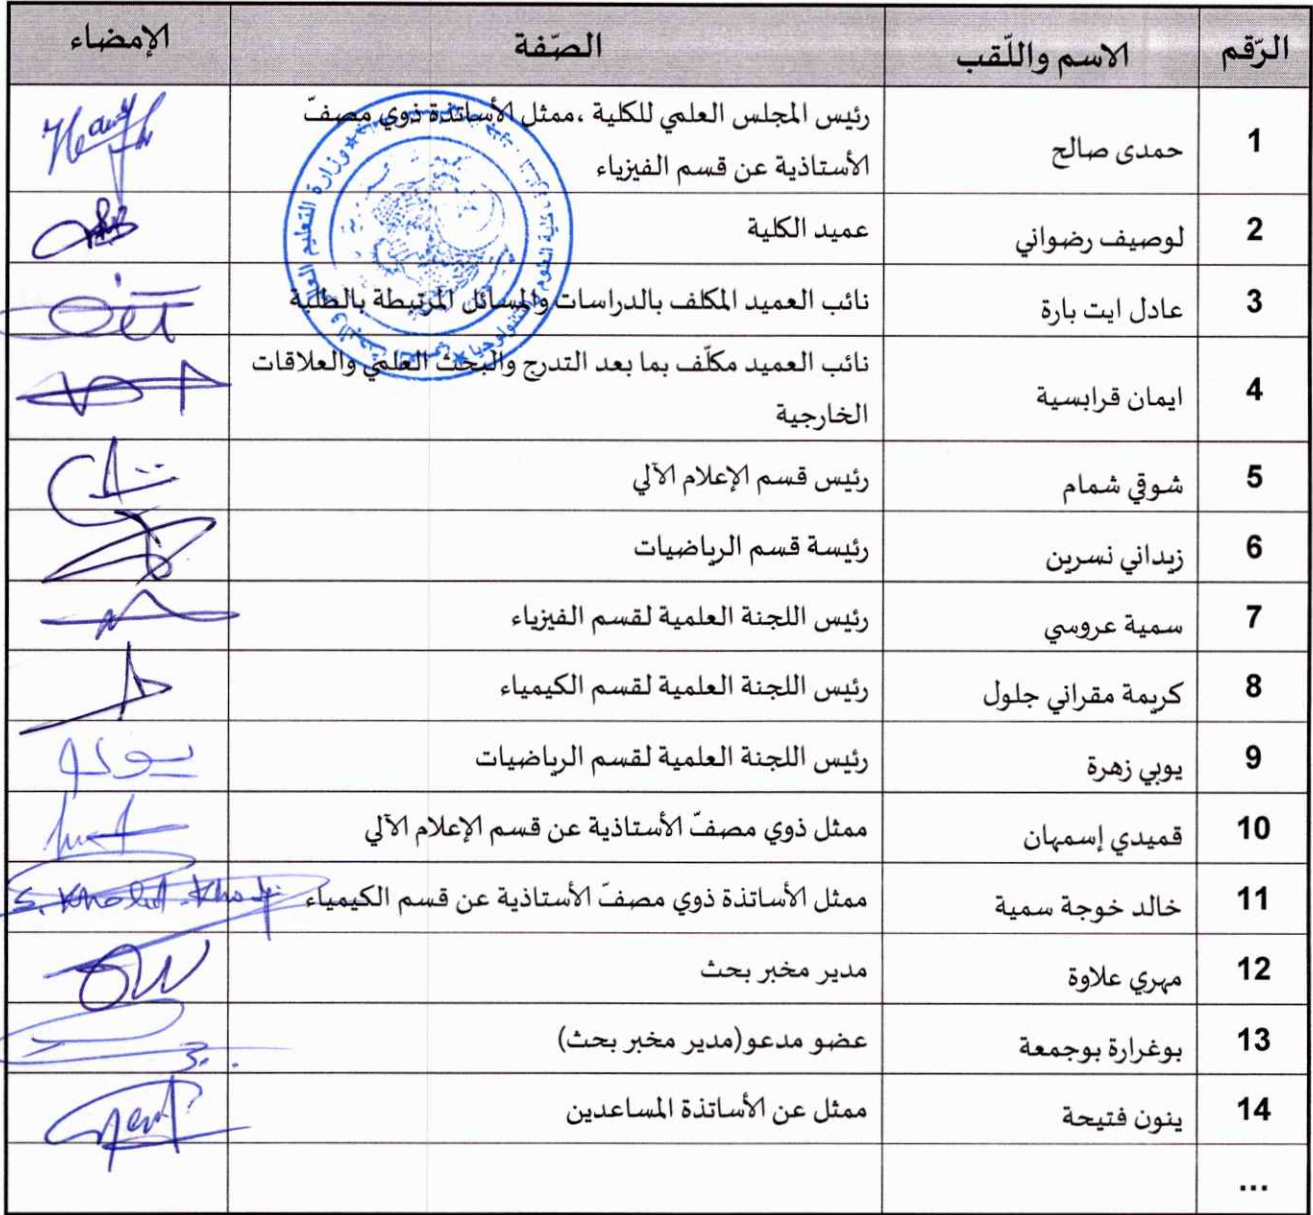 الرّقم الاسم واللّقب الصّفة الإمضاء
1 حمدى صالح رئيس المجلس العلمي للكلية ،ممثل الأساتذة ذوي مصفّ
الأستاذية عن قسم الفيزياء
2 لوصيف رضواني عميد الكلية
3 عادل ايت بارة نائب العميد المكلف بالدراسات والمسائل المرتبطة بالطلبة
4 ايمان قرابسية نائب العميد مكلّف بما بعد التدرج والبحث العلمي والعلاقات
الخارجية
5 شوقي شمام رئيس قسم الإعلام الآلي
6 زيداني نسرين رئيسة قسم الرياضيات
7 سمية عروسي رئيس اللجنة العلمية لقسم الفيزياء
8 كريمة مقراني جلول رئيس اللجنة العلمية لقسم الكيمياء
9 يوبي زهرة رئيس اللجنة العلمية لقسم الرياضيات
10 قميدي إسمهان ممثل ذوي مصفّ الأستاذية عن قسم الإعلام الآلي
11 خالد خوجة سمية ممثل الأساتذة ذوي مصفّ الأستاذية عن قسم الكيمياء
12 مهري علاوة مدير مخبر بحث
13 بوغرارة بوجمعة عضو مدعو(مدير مخبر بحث)
14 ينون فتيحة ممثل عن الأساتذة المساعدين
...
وزارة التعليم العالي